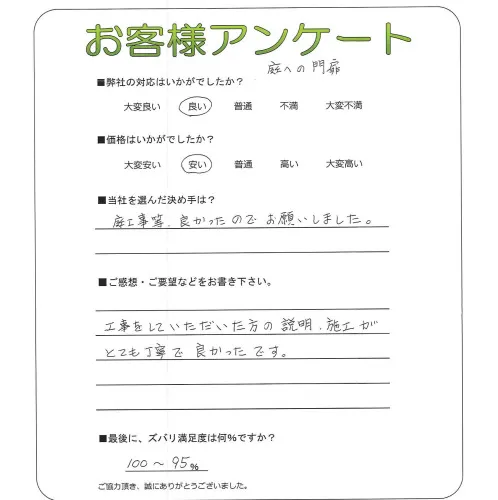 お客様アンケート
庭への門扉
■弊社の対応はいかがでしたか?
大変良い 良い 普通 不満 大変不満
■価格はいかがでしたか?
大変安い 安い 普通 高い 大変高い
■当社を選んだ決め手は?
庭工事等、良かったのでお願いしました。
■ご感想・ご要望などをお書き下さい。
工事をしていただいた方の説明、施工が
とても丁寧で良かったです。
■最後に、ズバリ満足度は何%ですか?
100～95%
ご協力頂き、誠にありがとうございました。